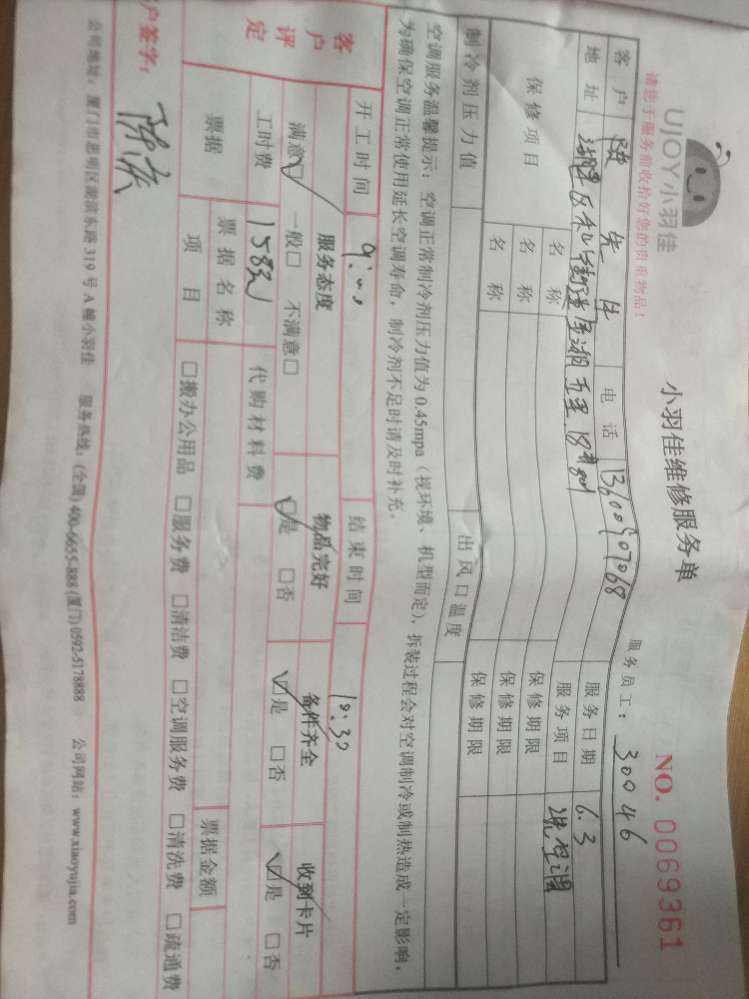 UJOY小羽佳
小羽佳维修服务单
NO. 0069361
请您于服务前收拾好您的贵重物品！
服务员工：30046
客户 先生 电话 服务日期 6.3
地址 服务项目 洗空调
保修项目 名称 保修期限
名称 保修期限
名称 保修期限
制冷剂压力值 出风口温度
空调服务温馨提示：空调正常制冷剂压力值为0.45mpa（视环境、机型而定），拆装过程会对空调制冷或制热造成一定影响，
为确保空调正常使用延长空调寿命，制冷剂不足时请及时补充。
开工时间 9:00 结束时间 10:30
客户评定 服务态度 物品完好 备件齐全 收到卡片
满意☑ 一般□ 不满意□ ☑是 □否 ☑是 □否 ☑是 □否
工时费 158元 代购材料费
票据 票据名称 票据金额
项目 □搬办公用品 □服务费 □清洁费 □空调服务费 □清洗费 □疏通费
户签字：
公司地址：厦门市思明区湖滨东路319号A幢小羽佳 服务热线：(全国) 400-6655-888 (厦门) 0592-5178888 公司网站：www.xiaoyujia.com